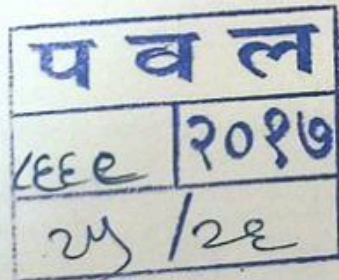 प व ल
८६६९ २०१७
२५ / २६